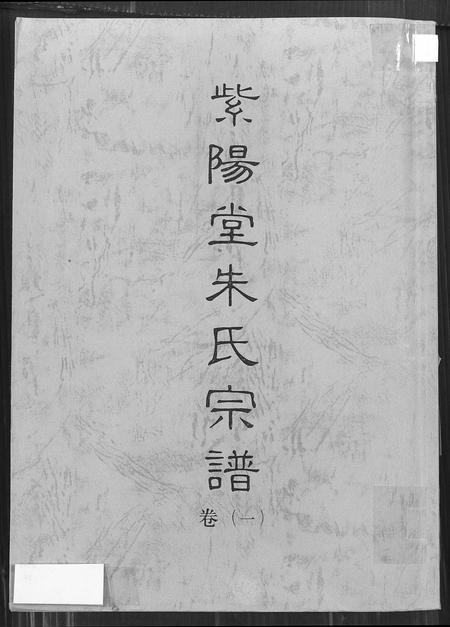 紫陽堂朱氏宗譜
卷(一)